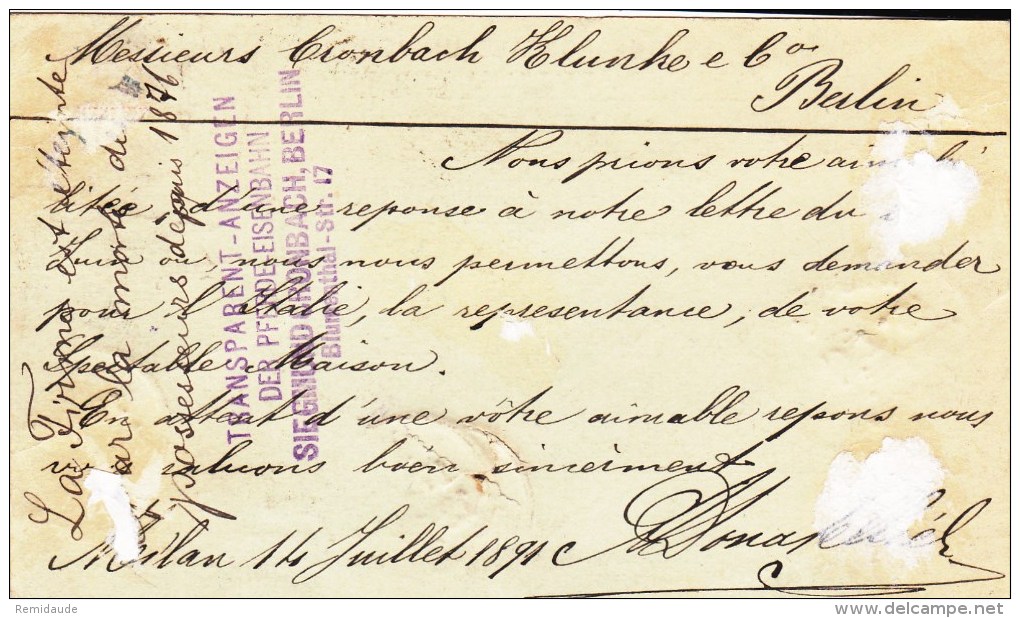 Messieurs Cronbach Klunke e Co
Berlin
Nous prions votre
bitée, d'une reponse à notre lettre du
Juin ou, nous nous permettons, vous demander
pour l'Italie, la represéntance, de votre
Spectable Maison.
En attent d'une vôtre aimable repons nous
saluons bien sincerment
Milan 14 Juillet 1891
La Firme est etteynte
par la mort du
possesseurs dépuis 1876
TRANSPARENT-ANZEIGEN
DER PFERDEEISENBAHN
SIEGMUND CRONBACH, BERLIN
Blumenthal-Str. 17
Remidaude
www.delcampe.net